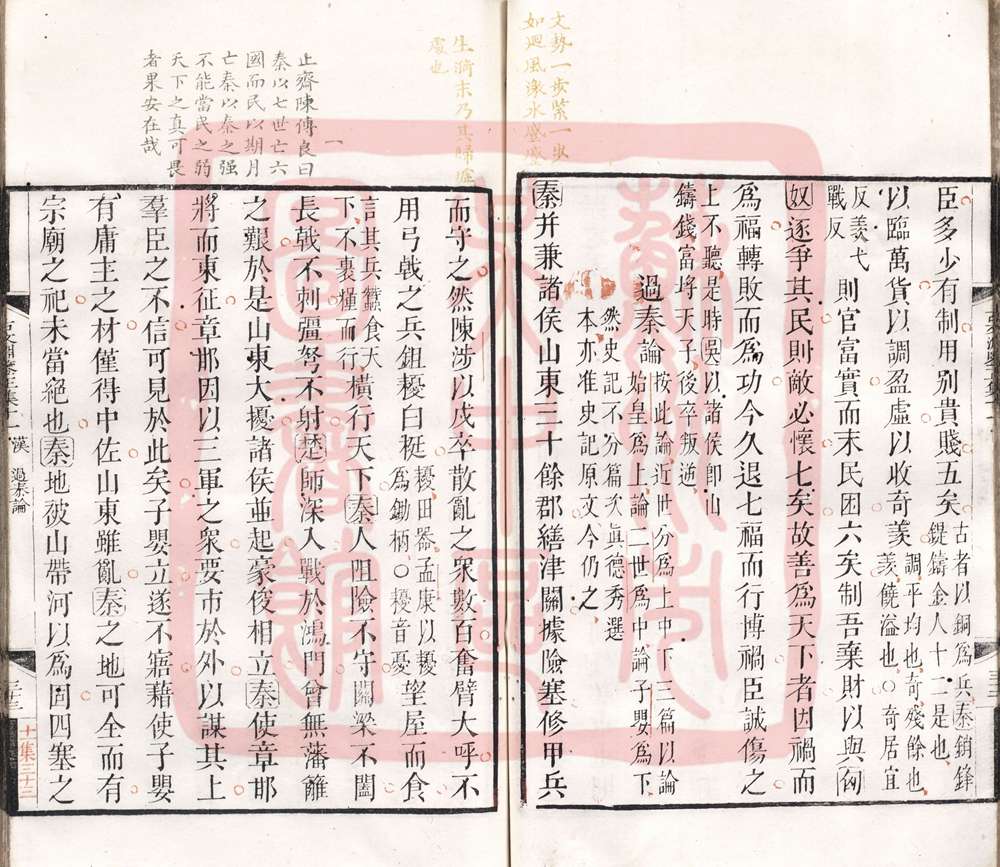 文勢一步緊一步
如迴風激水盛盛
臣多少有制用別貴賤五矣古者以銅爲兵秦銷鋒鍉鑄金人十二是也
以臨萬貨以調盈虛以收奇羨調平均也奇殘餘也羨饒溢也○奇居宜
反羨弋戰反則官富實而末民困六矣制吾棄財以與匈
奴逐爭其民則敵必懷七矣故善爲天下者因禍而
爲福轉敗而爲功今久退七福而行博禍臣誠傷之
上不聽是時吳以諸侯卽山鑄錢富埒天子後卒叛逆
過秦論按此論近世分爲上中下三篇以論始皇爲上論二世爲中論子嬰爲下
然史記不分篇次眞德秀選本亦准史記原文今仍之
秦并兼諸侯山東三十餘郡繕津關據險塞修甲兵
生漪末乃其歸墟
處也
止齋陳傅良曰
秦以七世亡六
國而民以期月
亡秦以秦之强
不能當民之弱
天下之真可畏
者果安在哉
而守之然陳涉以戍卒散亂之衆數百奮臂大呼不
用弓戟之兵鉏櫌白梃櫌田器孟康以櫌爲鋤柄○櫌音憂望屋而食
言其兵蠶食天下不裹糧而行橫行天下秦人阻險不守關梁不闔
長戟不刺彊弩不射楚師深入戰於鴻門曾無藩籬
之艱於是山東大擾諸侯並起豪俊相立秦使章邯
將而東征章邯因以三軍之衆要市於外以謀其上
羣臣之不信可見於此矣子嬰立遂不寤藉使子嬰
有庸主之材僅得中佐山東雖亂秦之地可全而有
宗廟之祀未當絕也秦地被山帶河以爲固四塞之
漢 過秦論